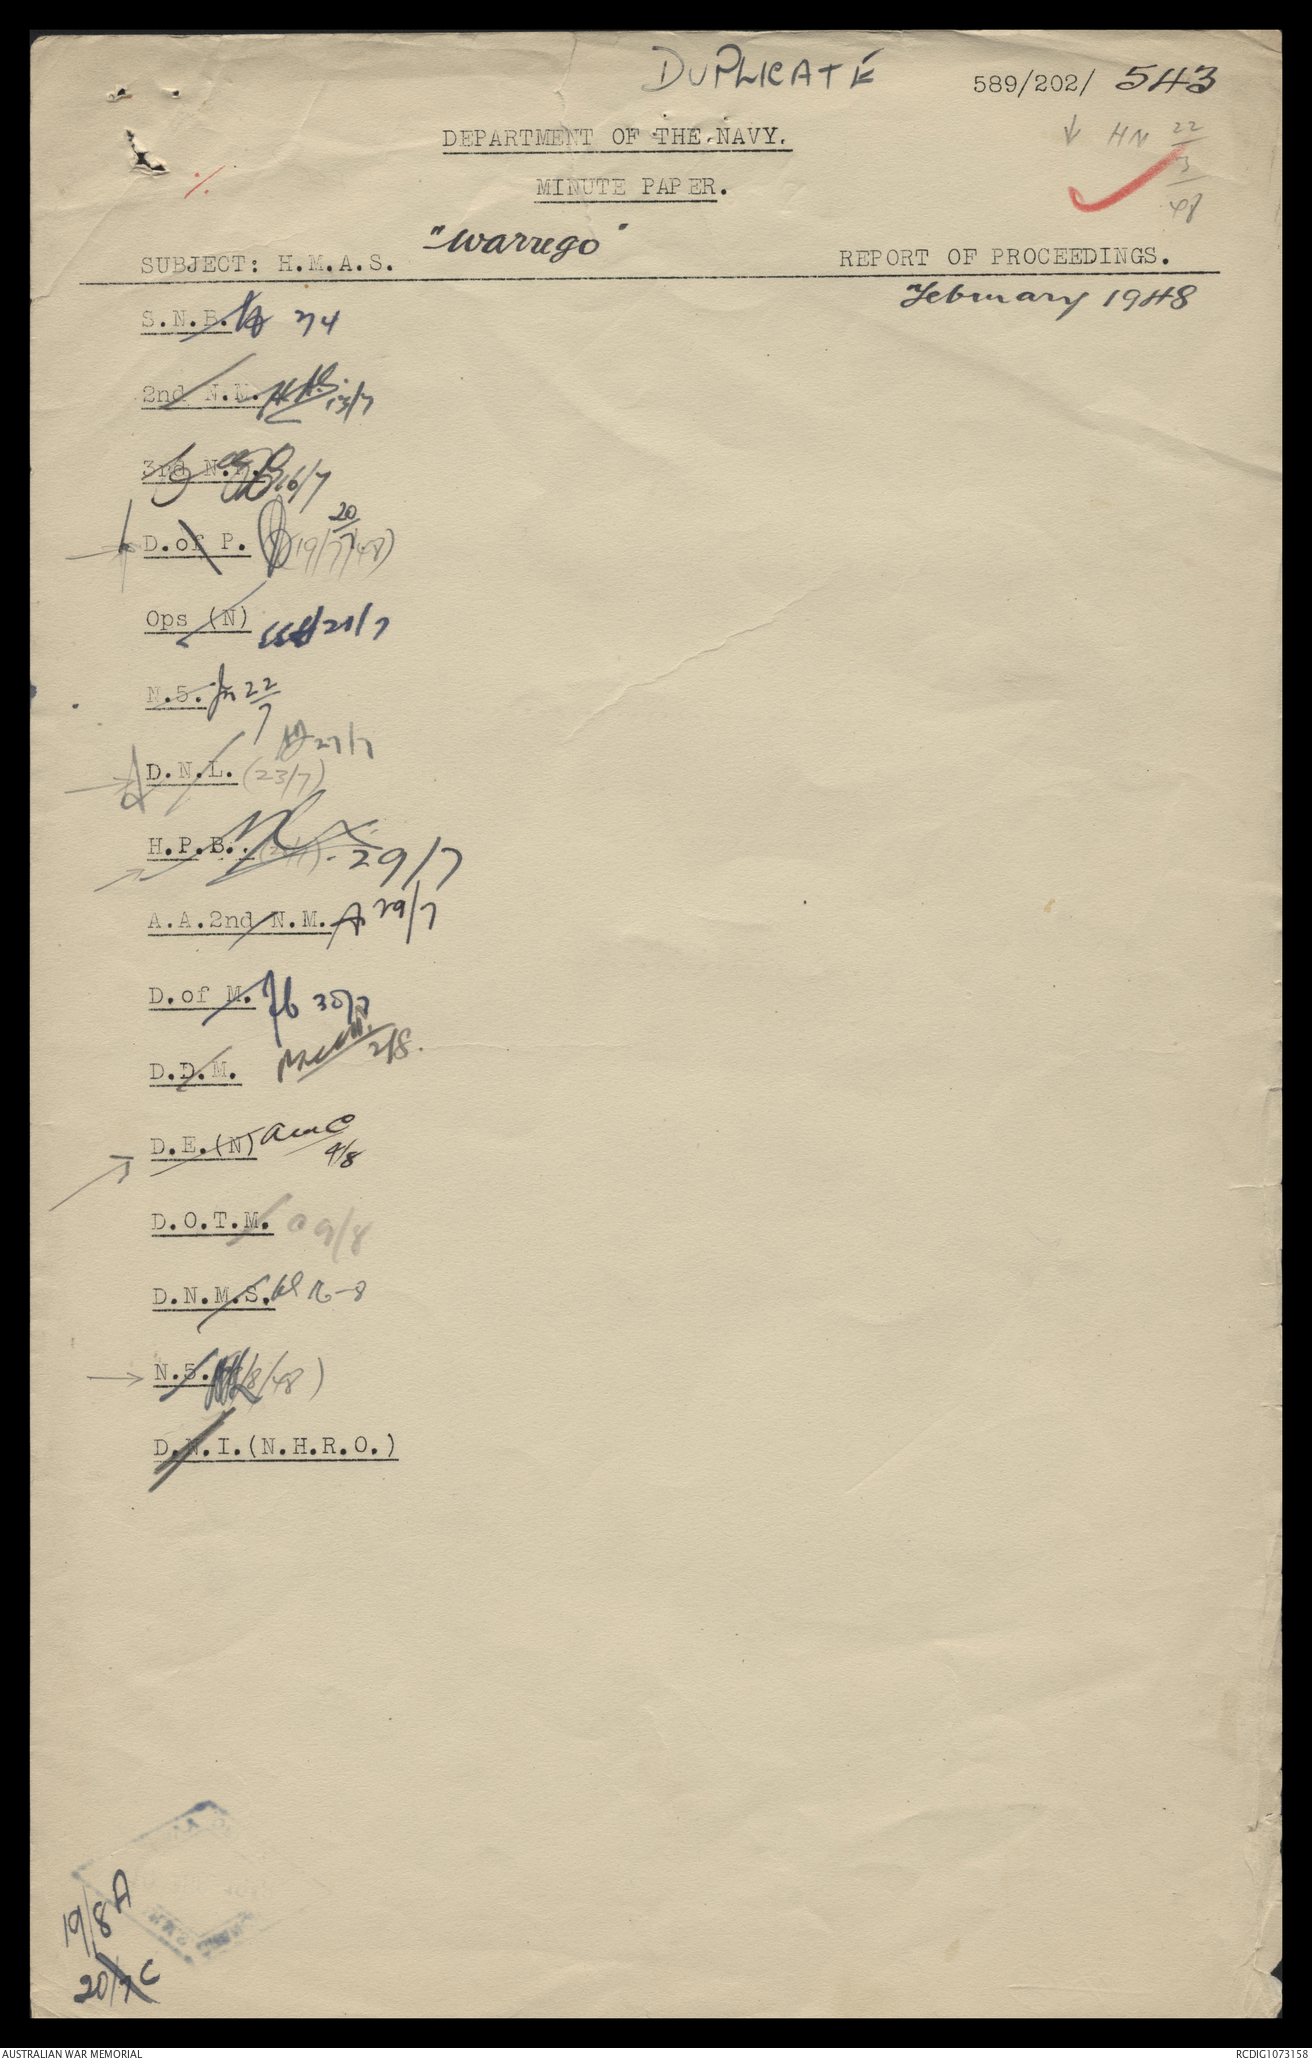 DUPLICATE
589/202/ 543
HN 22/3/48
DEPARTMENT OF THE NAVY.
MINUTE PAPER.
SUBJECT: H.M.A.S. "Warrego" REPORT OF PROCEEDINGS.
February 1948
S.N.B.
2nd N.M. 13/7
3rd N.M. 16/7
D.of P. (19/7/48) 20/7
Ops (N) 21/7
N.5. 22/7
D.N.L. (23/7) 27/7
H.P.B. 29/7
A.A.2nd N.M. 29/7
D.of M. 30/7
D.D.M. 2/8.
D.E.(N) 9/8
D.O.T.M. 9/8
D.N.M.S.
N.5. /8/48)
D.N.I.(N.H.R.O.)
19/8 A
20/7 C
AUSTRALIAN WAR MEMORIAL
RCDIG1073158